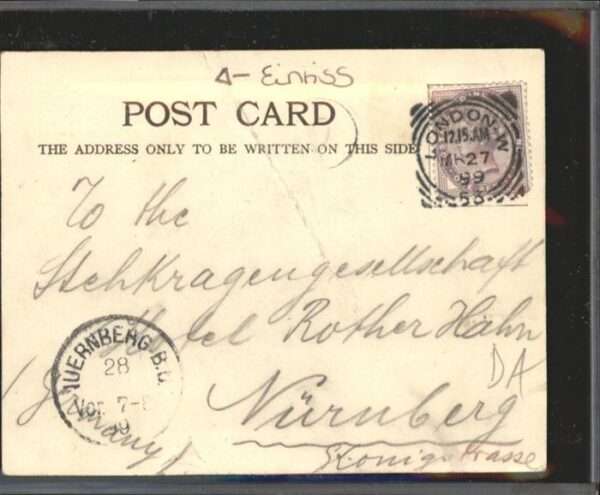 Einriss
POST CARD
THE ADDRESS ONLY TO BE WRITTEN ON THIS SIDE
LONDON·W
12.15.AM
MR 27
99
53
To the
Stehkragengesellschaft
Hotel Rother Hahn
DA
Nürnberg
Königstrasse
(Germany)
NUERNBERG B.
28
7-8